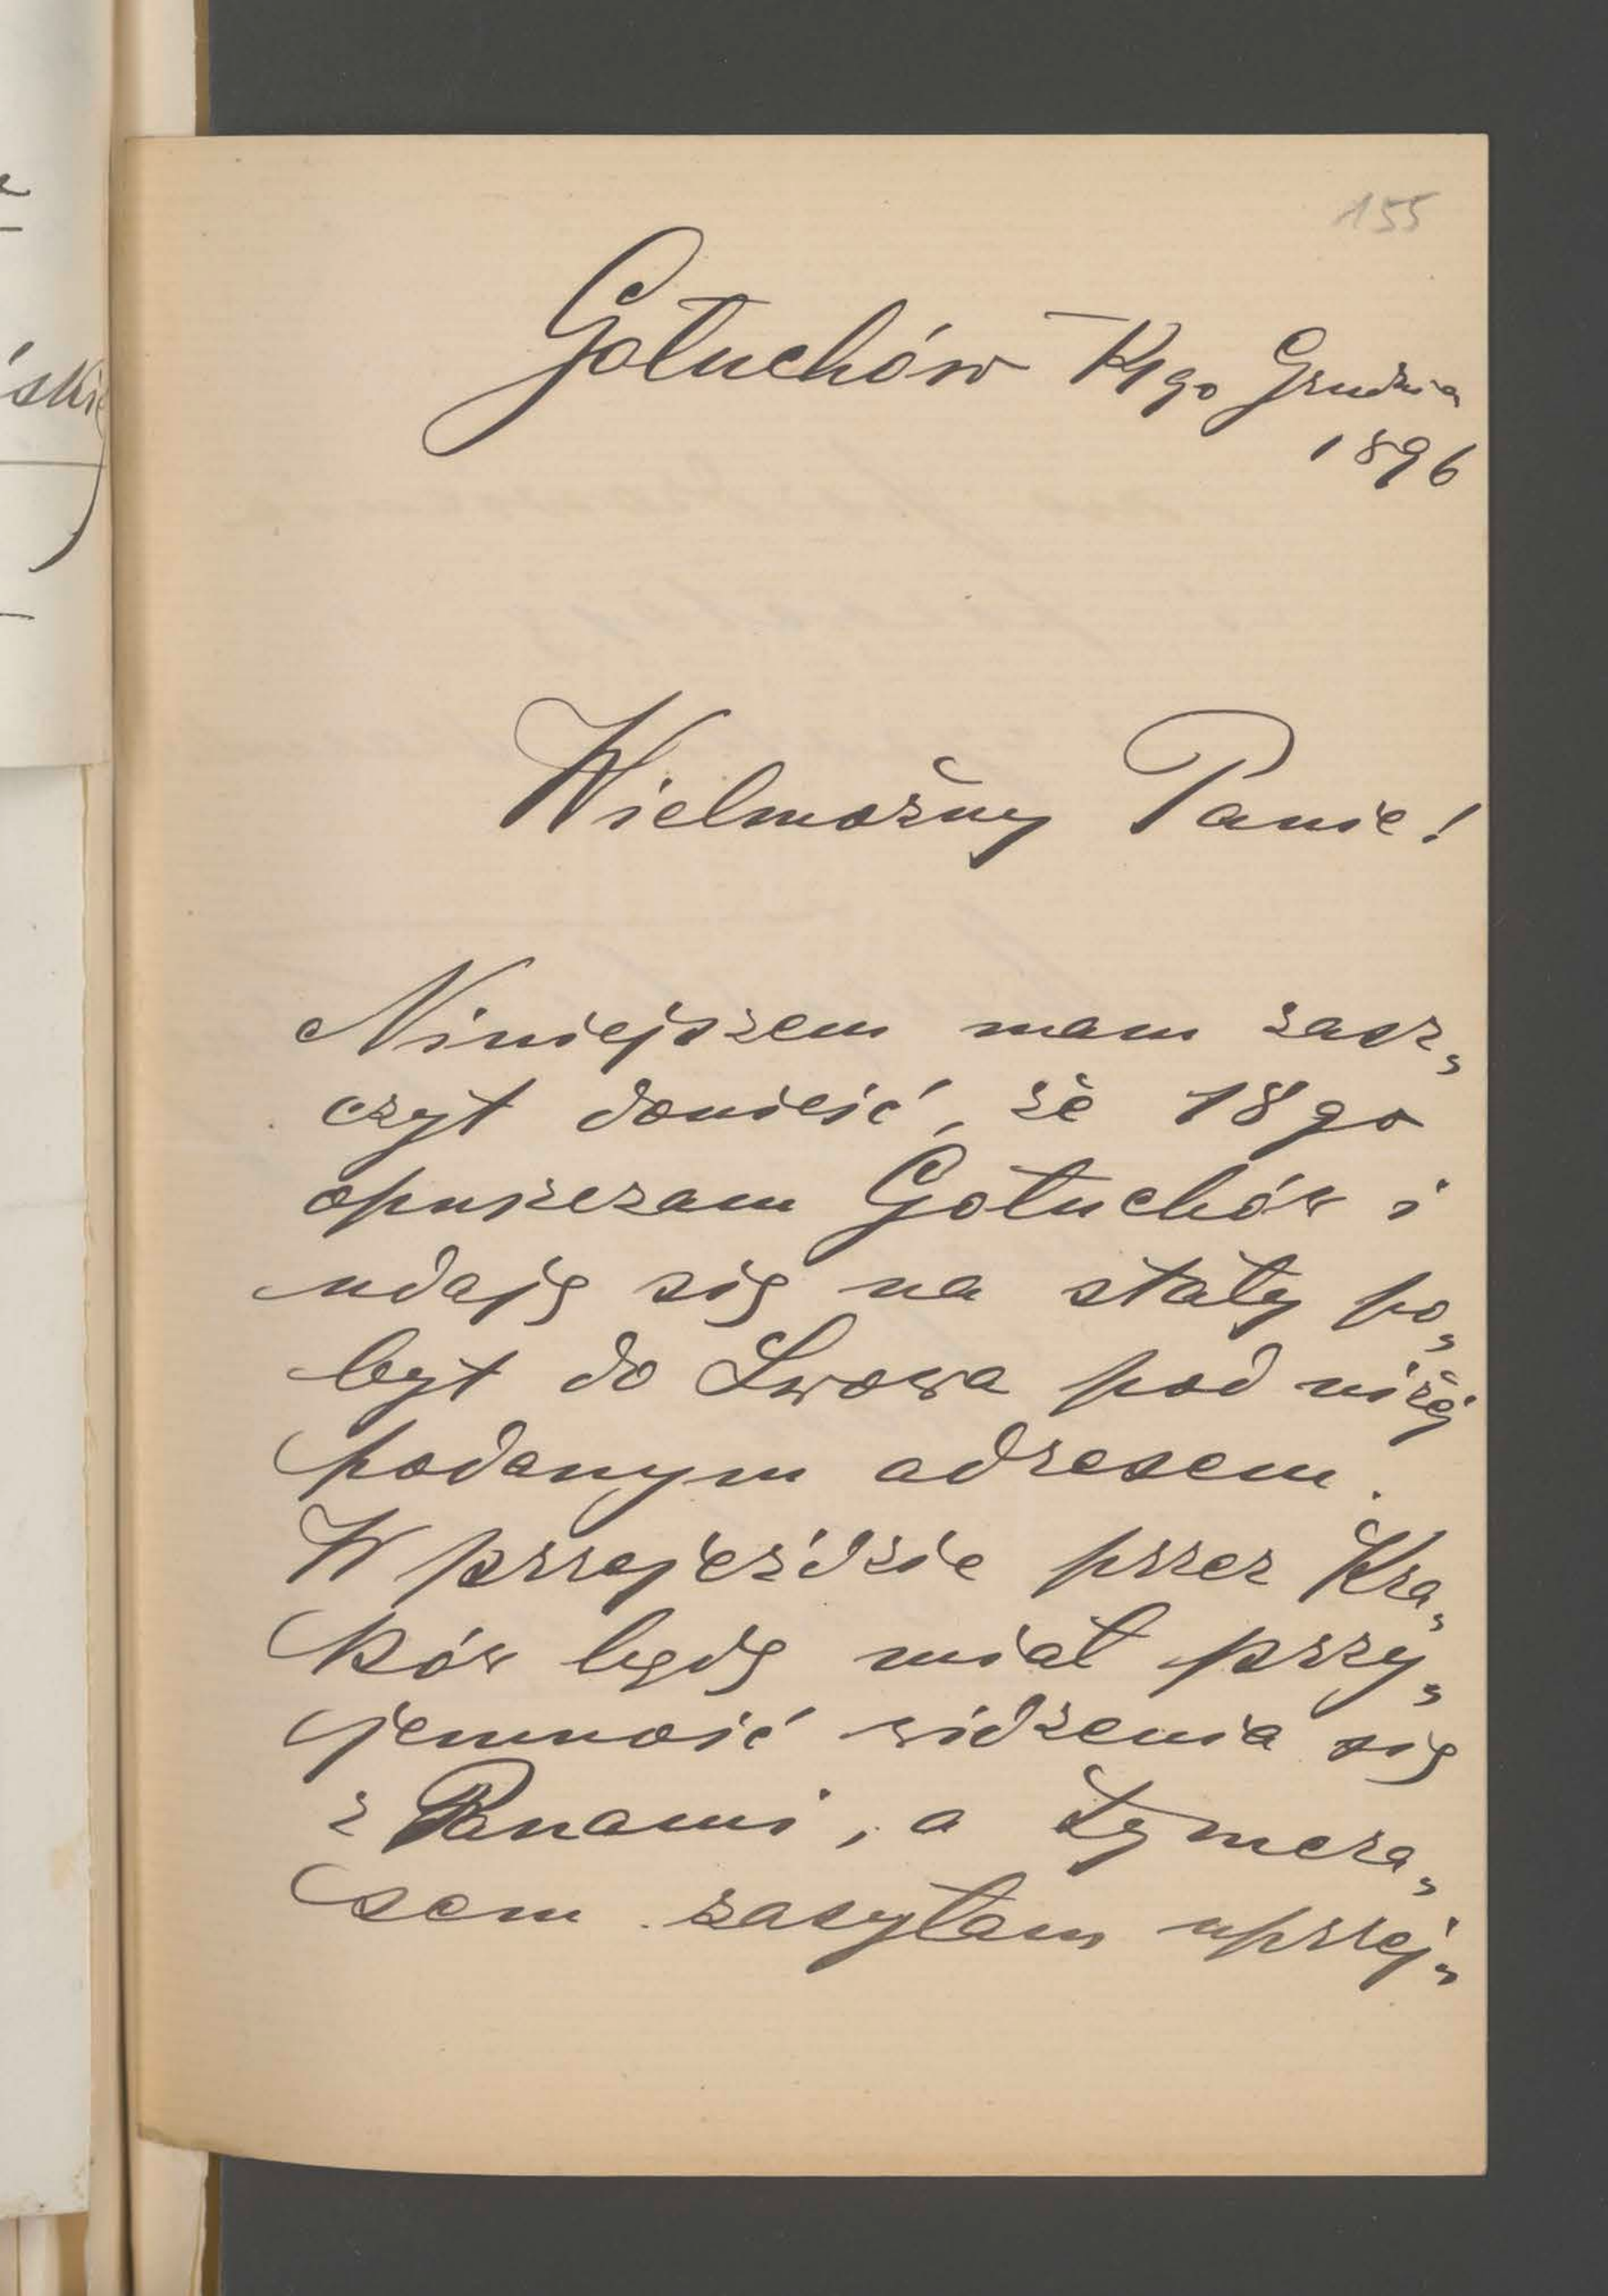 155
Gołuchów 14go Grudnia
1896
Wielmożny Panie!
Niniejszem mam zasz„
czyt donieść, że 18go
opuszczam Gołuchów i
udaję się na stały po„
byt do Lwowa pod niżéj
podanym adresem.
W przejeździe przez Kra„
ków będę miał przy„
jemność widzenia się
z Panami, a tymcza„
sem zasyłam uprzej„
skie